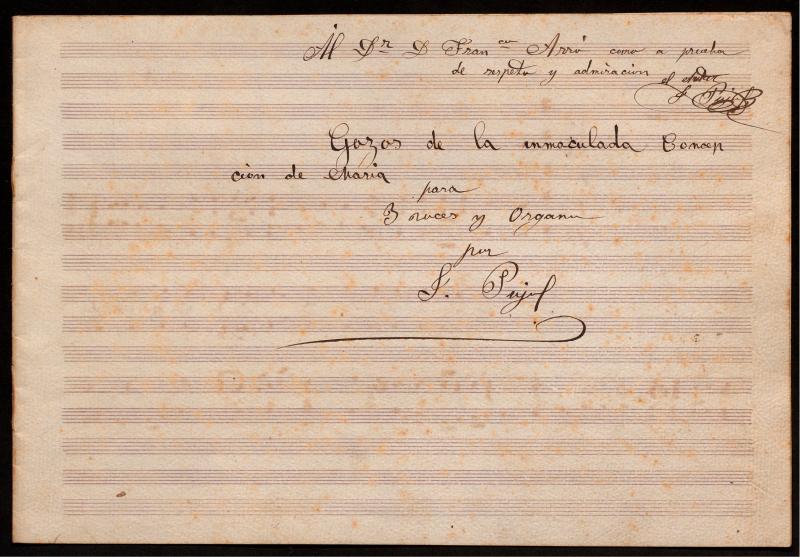 Al Dr D Franco Arró como a prueba
de respeto y admiración el autor
F. Pujol
Gozos de la inmaculada Concep
ción de Maria
para
3 voces y Organo
por
F. Pujol